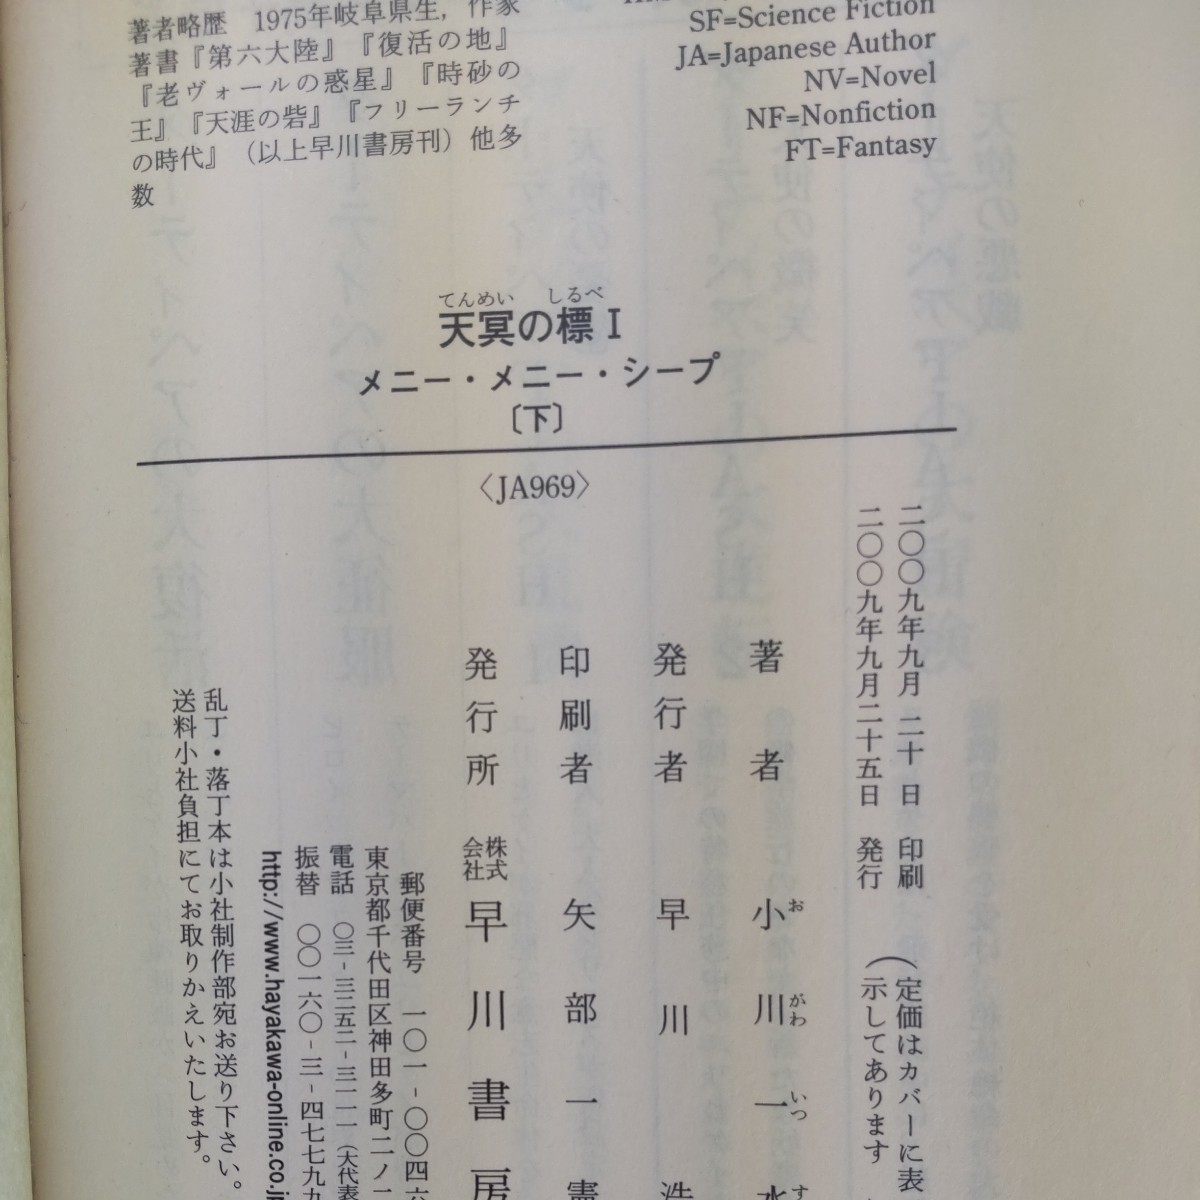 著者略歴 1975年岐阜県生,作家
著書『第六大陸』『復活の地』
『老ヴォールの惑星』『時砂の
王』『天涯の砦』『フリーランチ
の時代』(以上早川書房刊)他多
数
SF=Science Fiction
JA=Japanese Author
NV=Novel
NF=Nonfiction
FT=Fantasy
てんめい しるべ
天冥の標Ⅰ
メニー・メニー・シープ
〔下〕
〈JA969〉
二〇〇九年九月二十日 印刷
二〇〇九年九月二十五日 発行
(定価はカバーに表
示してあります
著者 小川一水
お がわ いつ す
発行者 早川 浩
印刷者 矢部一憲
発行所 株式会社 早川書房
郵便番号 一〇一-〇〇四六
東京都千代田区神田多町二ノ二
電話 〇三-三二五二-三一一一(大代表
振替 〇〇一六〇-三-四七七九
http://www.hayakawa-online.co.j
乱丁・落丁本は小社制作部宛お送り下さい。
送料小社負担にてお取りかえいたします。